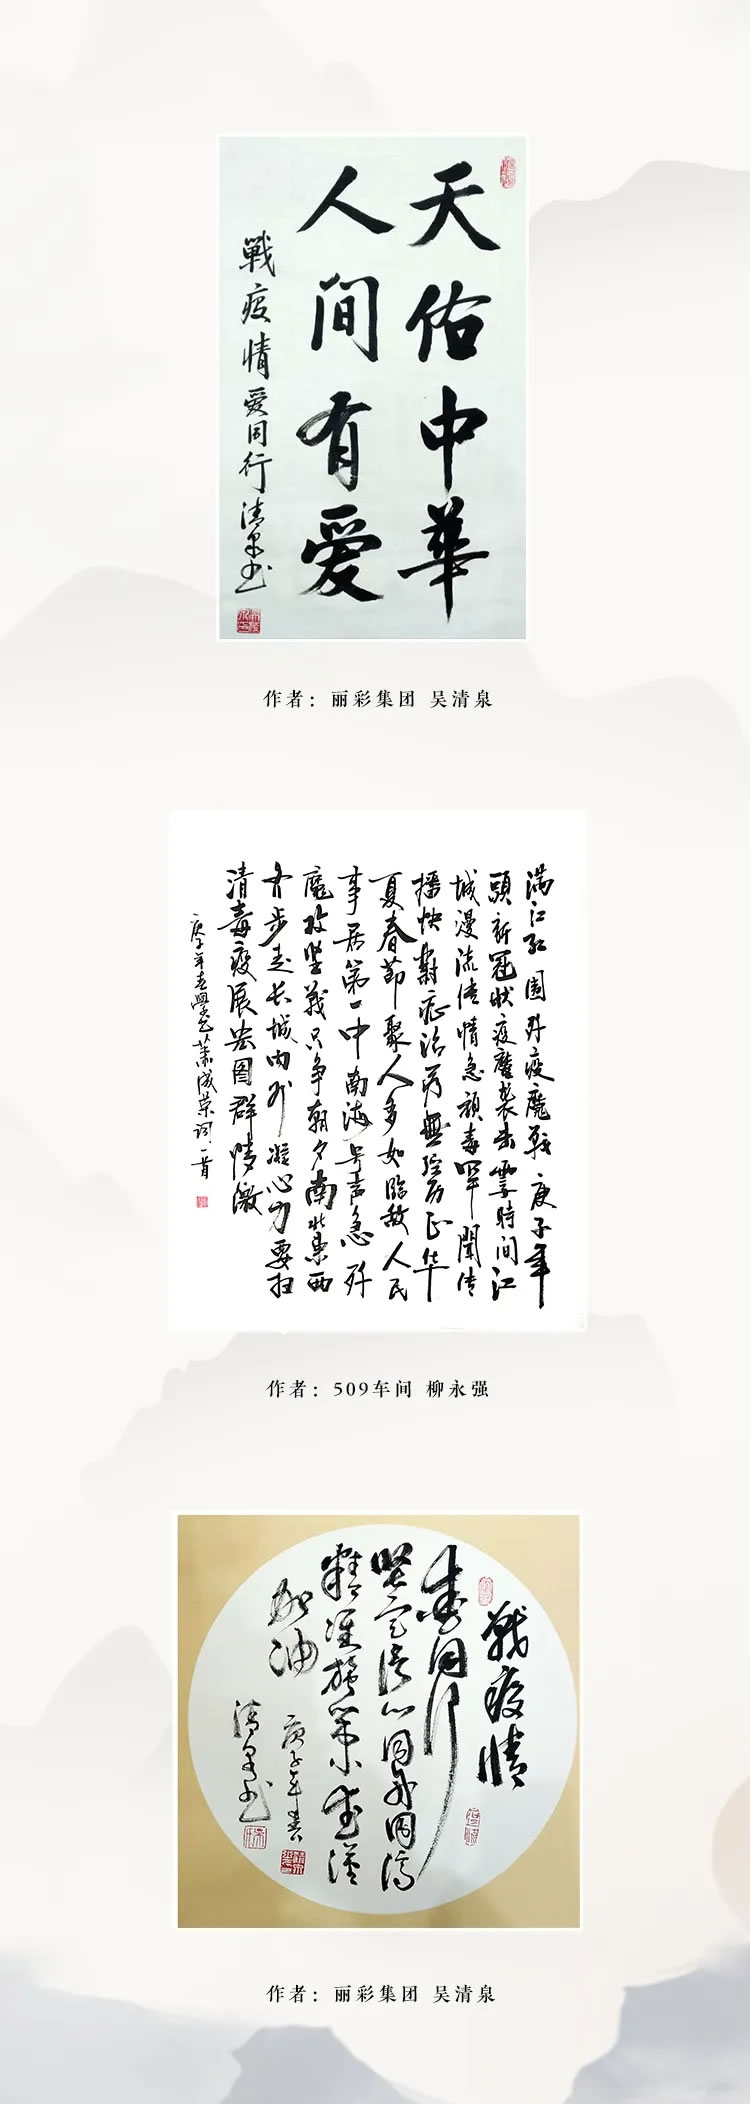 天佑中華
人间有爱
戰疫情爱同行清泉书
作者：丽彩集团 吴清泉
满江红围歼疫魔战庚子年
頭新冠状疫魔袭击霎時间江
城漫流传情急顽毒罕闻传
播快對症治疗無经历正华
夏春節聚人多如临敌人民
事居第一中南海号声急歼
魔攻坚战只争朝夕南北东西
齐步走长城内外凝心力要扫
清毒疫展宏图群情激
庚子年春 萧成荣词一首
作者：509车间 柳永强
戰疫情
爱同行
坚定信心同舟共济
精准施策武漢
加油
庚子年春
清泉书
作者：丽彩集团 吴清泉